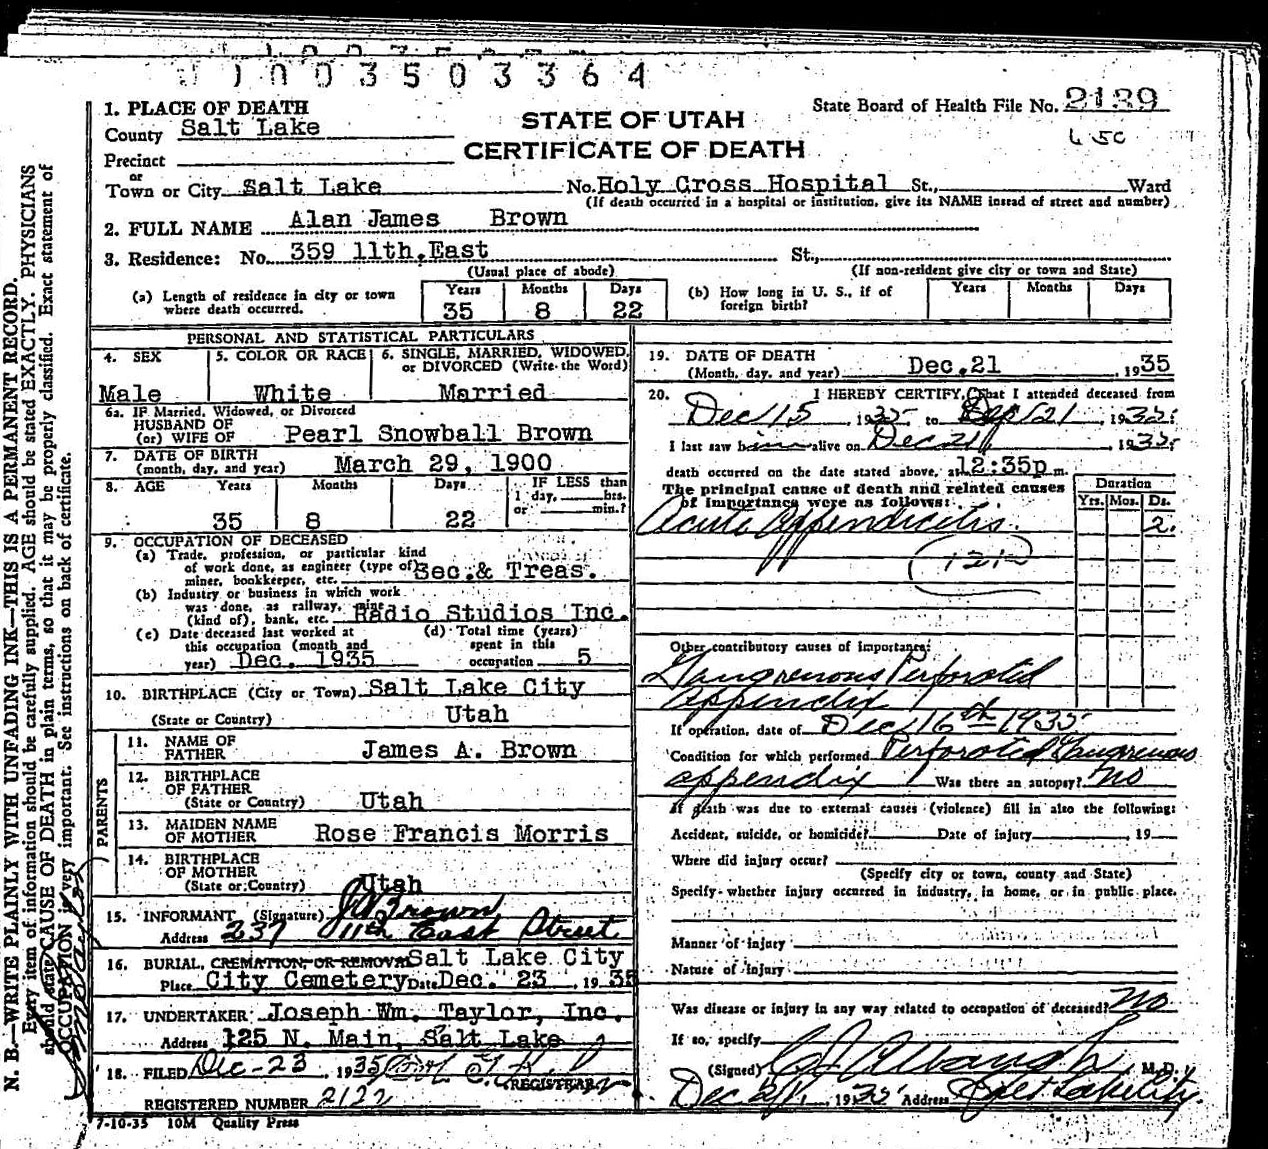 1003503364
1. PLACE OF DEATH
County Salt Lake
Precinct
or
Town or City Salt Lake No. Holy Cross Hospital St., Ward
(If death occurred in a hospital or institution, give its NAME instead of street and number)
STATE OF UTAH
CERTIFICATE OF DEATH
State Board of Health File No. 2139
2. FULL NAME Alan James Brown
3. Residence: No. 359 11th. East St.,
(Usual place of abode) (If non-resident give city or town and State)
(a) Length of residence in city or town where death occurred. Years 35 Months 8 Days 22
(b) How long in U. S., if of foreign birth? Years Months Days
PERSONAL AND STATISTICAL PARTICULARS
4. SEX Male
5. COLOR OR RACE White
6. SINGLE, MARRIED, WIDOWED, or DIVORCED (Write the Word) Married
6a. IF Married, Widowed, or Divorced
HUSBAND OF
(or) WIFE OF Pearl Snowball Brown
7. DATE OF BIRTH
(month, day, and year) March 29, 1900
8. AGE Years 35 Months 8 Days 22 IF LESS than 1 day, hrs. or min.?
9. OCCUPATION OF DECEASED
(a) Trade, profession, or particular kind
of work done, as engineer (type of)
miner, bookkeeper, etc. Sec. & Treas.
(b) Industry or business in which work
was done, as railway, mine
(kind of), bank, etc. Radio Studios Inc.
(c) Date deceased last worked at
this occupation (month and
year) Dec. 1935
(d) Total time (years)
spent in this
occupation 5
10. BIRTHPLACE (City or Town) Salt Lake City
(State or Country) Utah
PARENTS
11. NAME OF
FATHER James A. Brown
12. BIRTHPLACE
OF FATHER
(State or Country) Utah
13. MAIDEN NAME
OF MOTHER Rose Francis Morris
14. BIRTHPLACE
OF MOTHER
(State or Country) Utah
15. INFORMANT (Signature) Brown
Address 237 11th East Street
16. BURIAL, CREMATION, OR REMOVAL Salt Lake City
Place City Cemetery Date Dec. 23, 1935
17. UNDERTAKER Joseph Wm. Taylor, Inc.
Address 125 N. Main, Salt Lake
18. FILED Dec-23, 1935
REGISTRAR
REGISTERED NUMBER 2122
7-10-35 10M Quality Press
19. DATE OF DEATH
(Month, day, and year) Dec. 21, 1935
20. I HEREBY CERTIFY, That I attended deceased from
Dec 15, 1935 to Dec 21, 1935.
I last saw him alive on Dec 21, 1935.
death occurred on the date stated above, at 12:35p m.
The principal cause of death and related causes
of importance were as follows:
Duration
Yrs. Mos. Ds.
Acute Appendicitis 2.
121
Other contributory causes of importance:
Gangrenous Perforated
appendix
If operation, date of Dec 16th 1935
Condition for which performed Perforated Gangrenous
appendix Was there an autopsy? No
If death was due to external causes (violence) fill in also the following:
Accident, suicide, or homicide? Date of injury , 19
Where did injury occur?
(Specify city or town, county and State)
Specify whether injury occurred in industry, in home, or in public place.
Manner of injury
Nature of injury
Was disease or injury in any way related to occupation of deceased? No
If so, specify
(Signed) M.D.
Dec 21, 1935 Address Salt Lake City
N. B.—WRITE PLAINLY WITH UNFADING INK—THIS IS A PERMANENT RECORD.
Every item of information should be carefully supplied. AGE should be stated EXACTLY. PHYSICIANS
should state CAUSE OF DEATH in plain terms, so that it may be properly classified. Exact statement of
OCCUPATION is very important. See instructions on back of certificate.